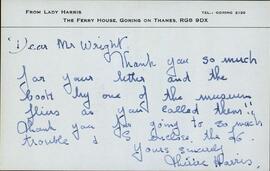 FROM LADY HARRIS
TEL.: GORING 2139
THE FERRY HOUSE, GORING ON THAMES, RG8 9DX
Dear Mr Wright
Thank you so much
for your letter and the
book by one of the museum
as you called them!!
Thank you for going to so much
trouble I enclose the £6.
Yours sincerely
Harris.